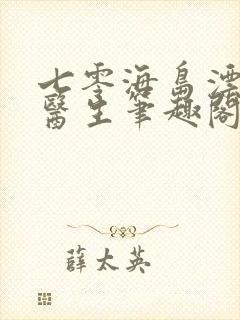 七零海島漂
醫生筆趣閣
薛太英